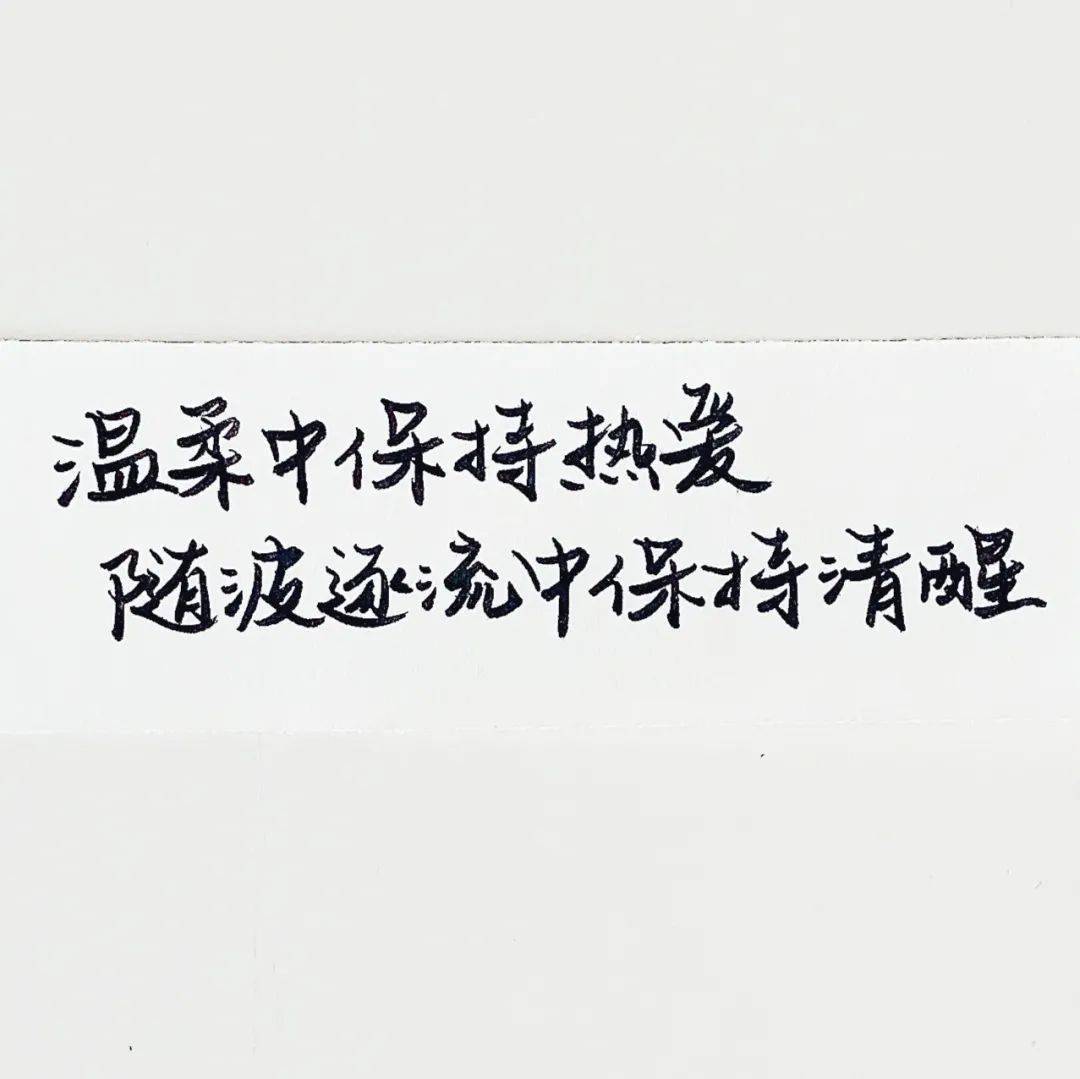 温柔中保持热爱
随波逐流中保持清醒